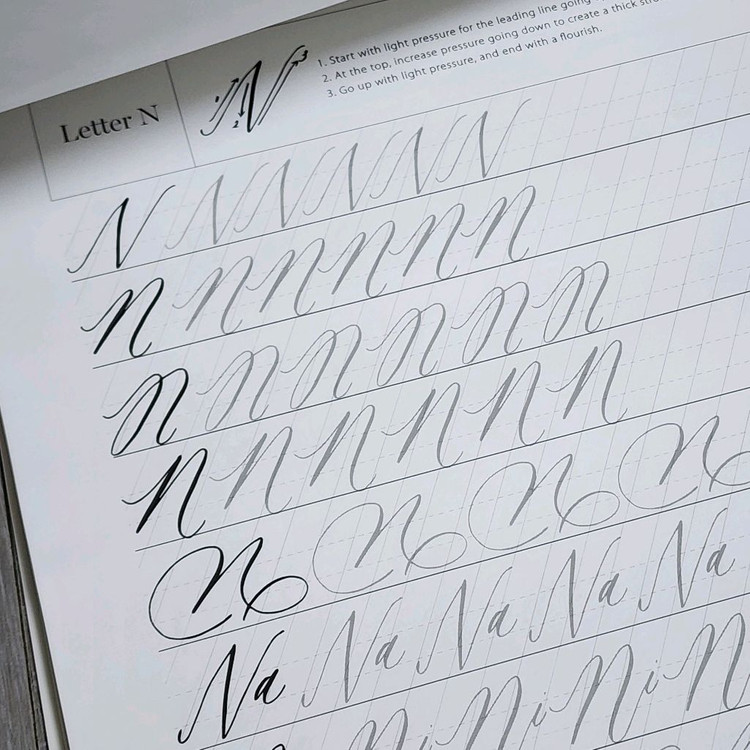 Letter N
N
1. Start with light pressure for the leading line going
2. At the top, increase pressure going down to create a thick
3. Go up with light pressure, and end with a flourish.
N N N N N N
N N N N N N
N N N N N N
N N N N N N
N N N N
Na Na Na Na Na
Ni Ni Ni N